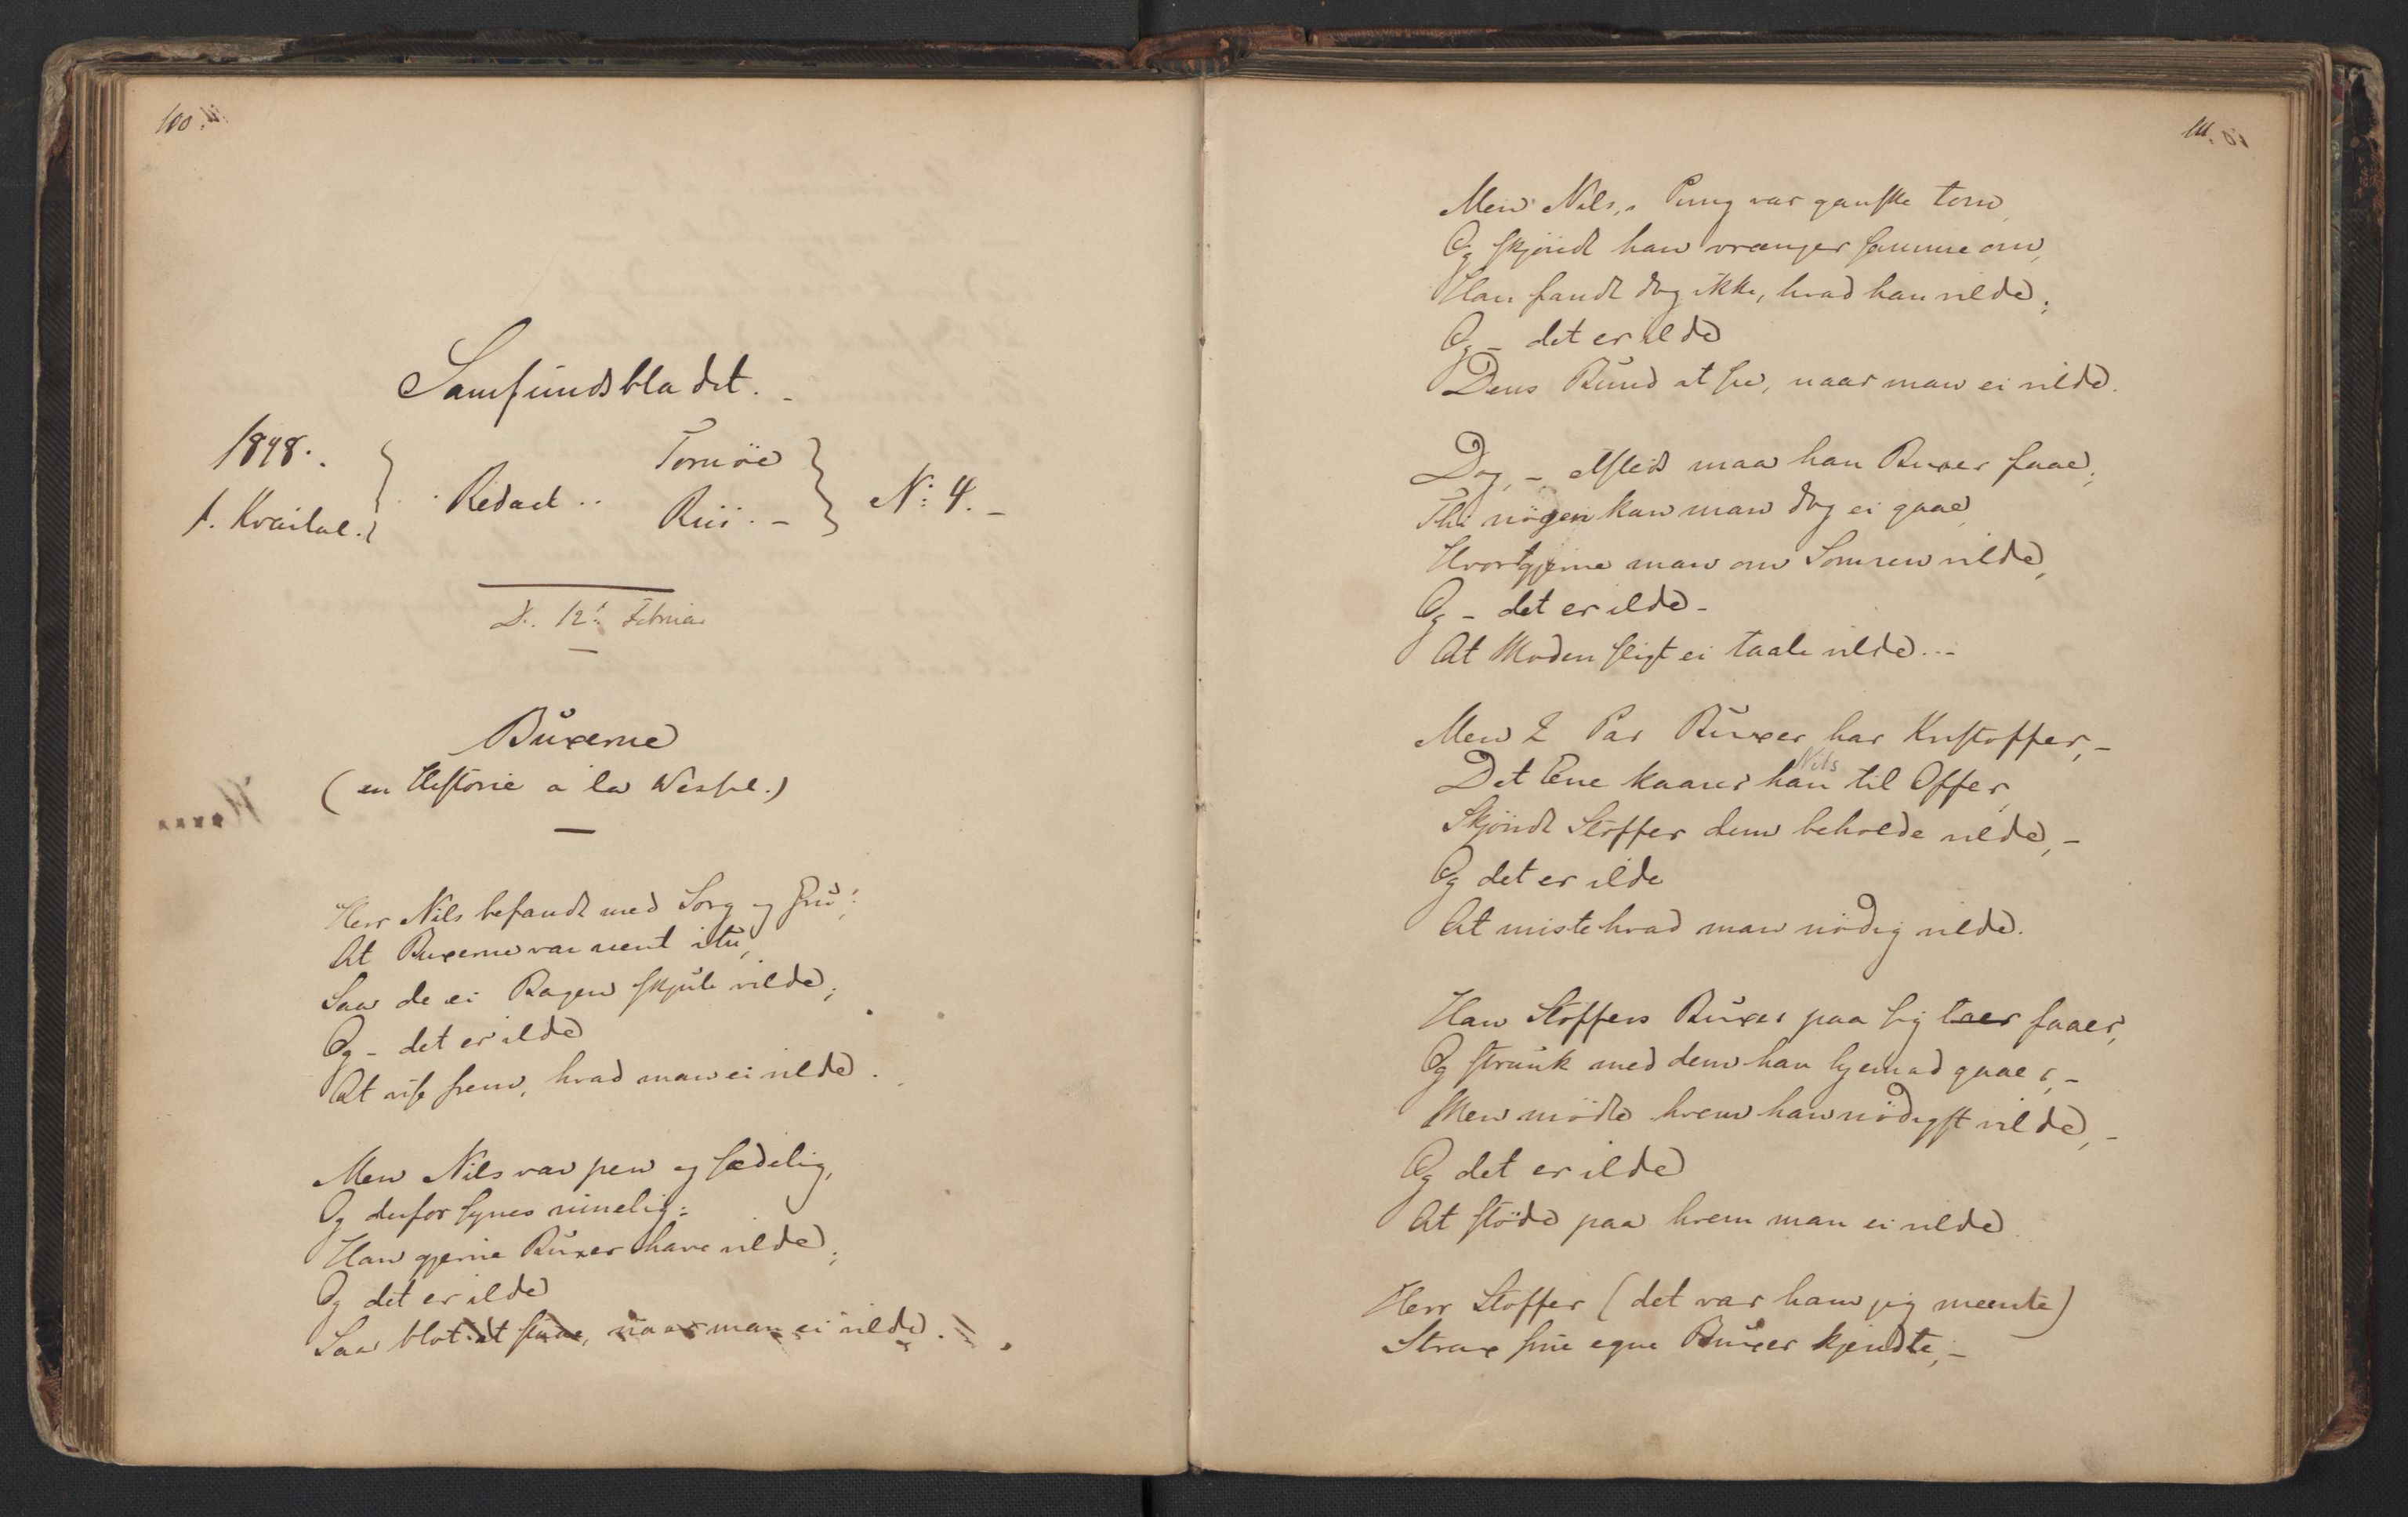 100.
Samfundsbladet.
1848.
1. Kvartal.
Redact..
Tornöe
Rii.
N: 4.
D. 12' Februar
Buxerne
(en Historie a la Wessel.)
Herr Nils befandt med Sorg og Gru:
At Buxerne var reent itu,
Saa de ei Bagen skjule vilde;
Og - det er ilde
At vise frem, hvad man ei vilde.
Men Nils var pen og sædelig,
Og derfor synes rimelig:
Han gjerne Buxer have vilde;
Og det er ilde
Saa blot at staae, naar man ei vilde.
Men Nils's Pung var ganske tom,
Og skjöndt han vrænger samme om,
Han fandt dog ikke, hvad han vilde;
Og - det er ilde
Dens Bund at see, naar man ei vilde.
Dog, - afsted maa han Buxer faae;
Thi nögen kan man dog ei gaae,
Hvor gjerne man om Somren vilde,
Og - det er ilde -
At Moden sligt ei taale vilde...
Men 2 Par Buxer har Kristoffer, -
Nils
Det Ene kaarer han til Offer,
Skjöndt Stoffer dem beholde vilde, -
Og det er ilde
At miste hvad man nödig vilde.
Han Stoffers Buxer paa sig taer faaer,
Og strunk med dem han hjemad gaaer, -
Men mödte hvem han nödigst vilde, -
Og det er ilde
At stöde paa hvem man ei vilde.
Herr Stoffer (det var ham jeg meente)
Strax sine egne Buxer kjendte, -